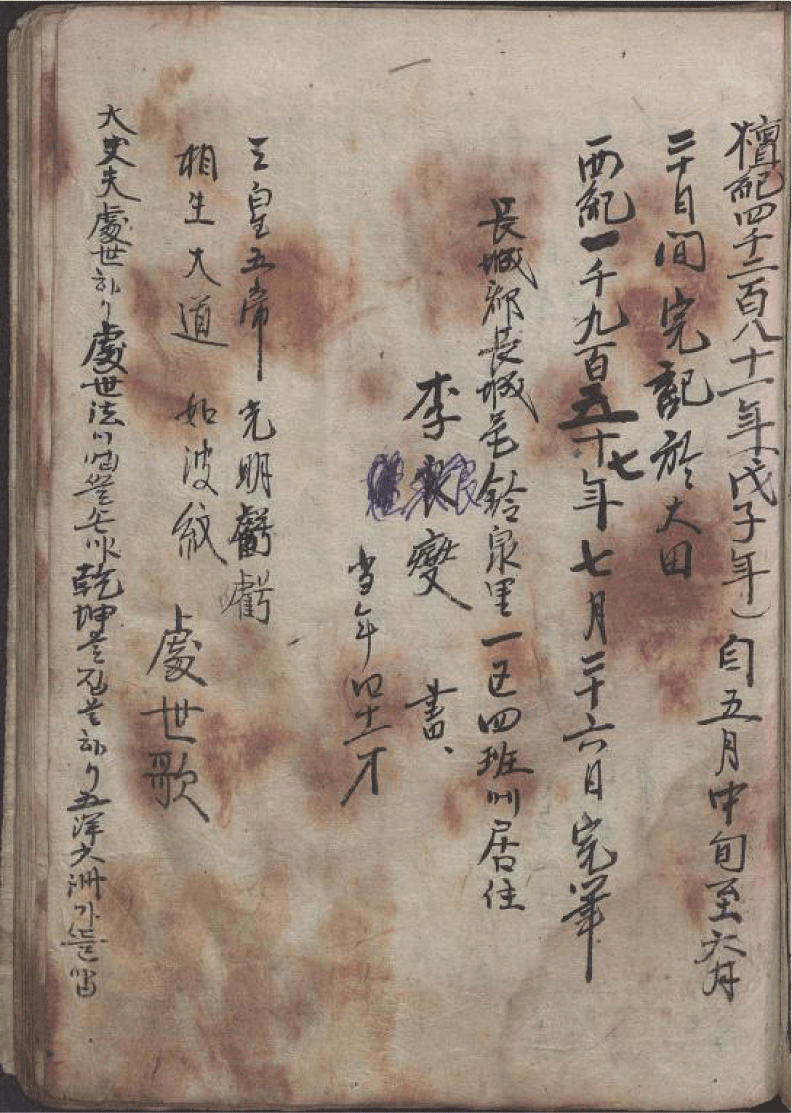 檀紀四千二百八十一年(戊子年)自五月中旬至六月
二十日間完記於大田
西紀一千九百五十七年七月二十六日完筆
長城郡長城邑鈴泉里一区四班에居住
李 變 書、
当年四十二才
三皇五帝 光明 虧虧
相生大道 如波紋
處世歌
大丈夫處世하야處世法이 乾坤 하야五洋六洲가